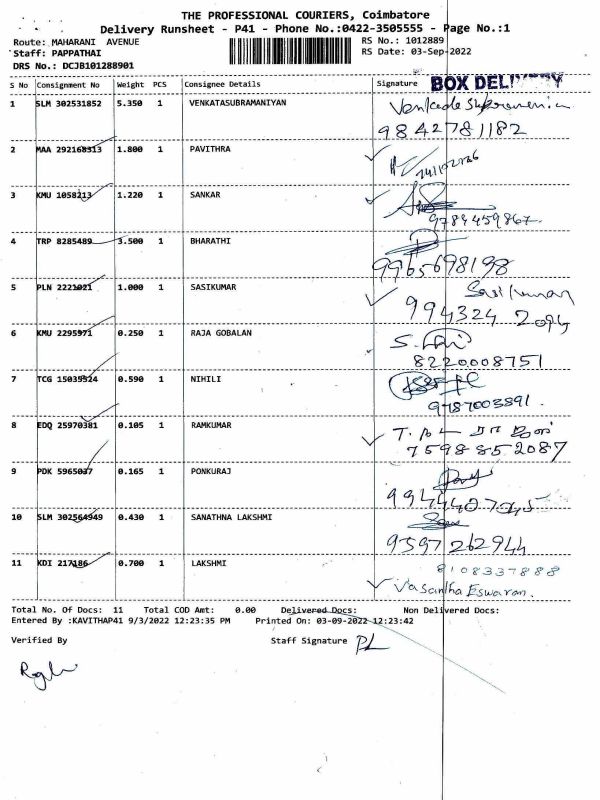 THE PROFESSIONAL COURIERS, Coimbatore
Delivery Runsheet - P41 - Phone No.:0422-3505555 - Page No.:1
Route: MAHARANI AVENUE RS No.: 1012889
Staff: PAPPATHAI RS Date: 03-Sep-2022
DRS No.: DCJB101288901
BOX DELIVERY
S No Consignment No Weight PCS Consignee Details Signature
1 SLM 302531852 5.350 1 VENKATASUBRAMANIYAN
9842781182
2 MAA 292168313 1.800 1 PAVITHRA
3 KMU 1058213 1.220 1 SANKAR
9784459867
4 TRP 8285489 3.500 1 BHARATHI
9965698198
5 PLN 2221021 1.000 1 SASIKUMAR Sasikumar
994324 2094
6 KMU 2295971 0.250 1 RAJA GOBALAN
8220008751
7 TCG 15035324 0.590 1 NIHILI
9787003891.
8 EDQ 25970381 0.105 1 RAMKUMAR
7598852087
9 PDK 5965037 0.165 1 PONKURAJ
10 SLM 302564949 0.430 1 SANATHNA LAKSHMI
9597262944
11 KDI 217186 0.700 1 LAKSHMI 8108337888
Vasantha Eswaran.
Total No. Of Docs: 11 Total COD Amt: 0.00 Delivered Docs: Non Delivered Docs:
Entered By :KAVITHAP41 9/3/2022 12:23:35 PM Printed On: 03-09-2022 12:23:42
Verified By Staff Signature